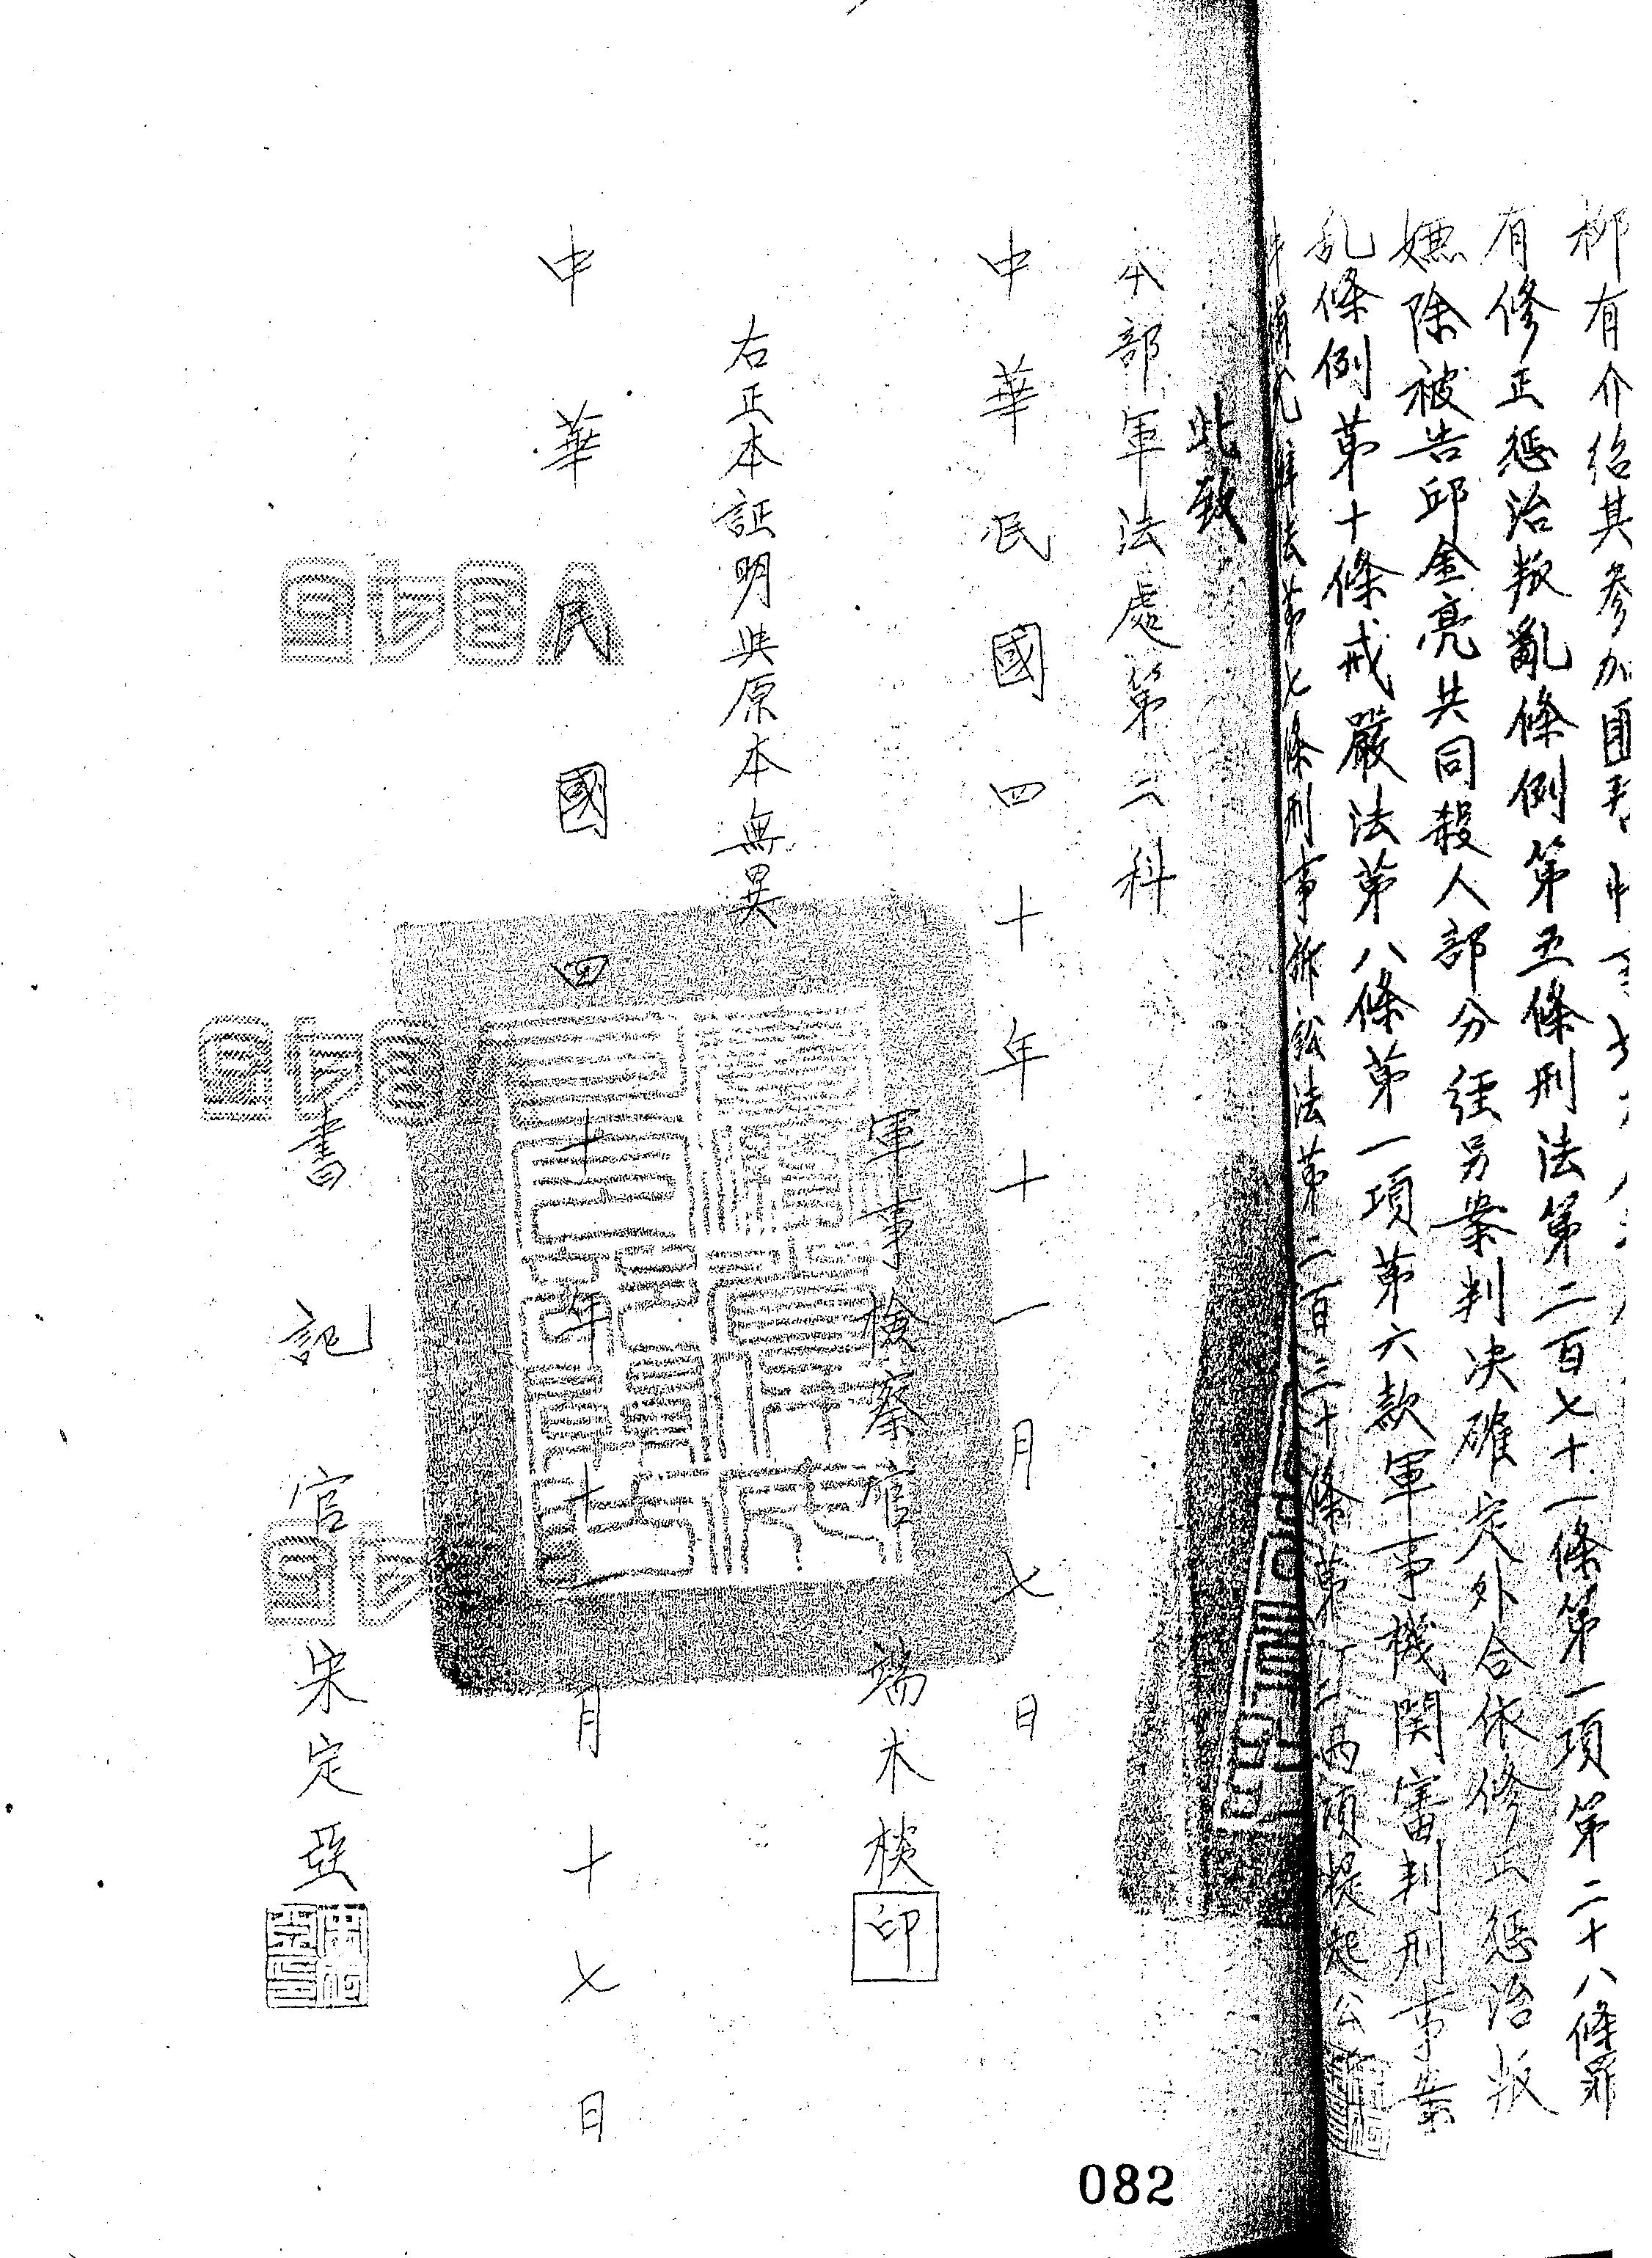 柳有介紹其參加
有修正惩治叛亂條例第五條刑法第二百七十一條第一項第二十八條罪
嫌除被告邱金亮共同殺人部分經另案判决確定外合依修正惩治叛
乱條例第十條戒嚴法第八條第一項第六款軍事機関審判刑事案
法第七條刑事訴訟法第二百三十條第一二两項提起公
此致
本部軍法處第二科
中華民國四十年十一月七日
軍事檢察官端木棪印
右正本証明與原本無異
中華民國四十年十一月十七日
書記官宋定亞
082